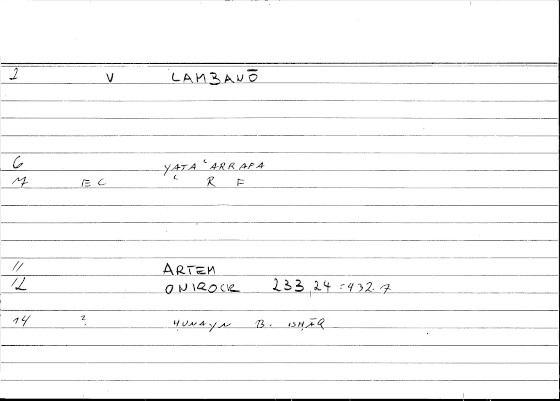 1 V LAMBANŌ
6 YATA ʿARRAFA
7 EC ʿ R F
11 ARTEM
12 ONIROCR 233,24 = 932.7
14 ? HUNAYN B. ISHĀQ